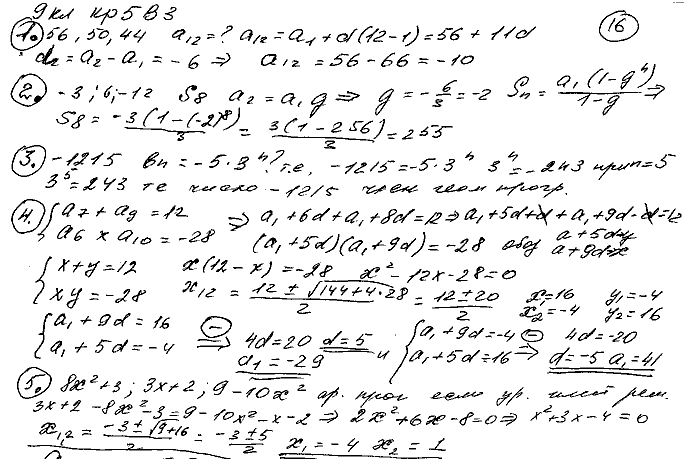 9 кл кр 5 В 3
16
1. 56, 50, 44 a₁₂ = ? a₁₂ = a₁ + d(12-1) = 56 + 11d
d = a₂ - a₁ = -6 ⇒ a₁₂ = 56 - 66 = -10
2. -3; 6; -12 S8 a₂ = a₁g ⇒ g = -6/3 = -2 Sₙ = a₁(1-gⁿ)/1-g ⇒
S8 = -3(1-(-2)⁸)/3 = 3(1-256)/3 = 255
3. -1215 bₙ = -5·3ⁿ? т.е. -1215 = -5·3ⁿ 3ⁿ = -243 при n=5
3⁵ = 243 те число -1215 член геом прогр.
4. { a₇ + a₉ = 12 ⇒ a₁ + 6d + a₁ + 8d = 12 ⇒ a₁ + 5d + d + a₁ + 9d - d = 12
a₆ × a₁₀ = -28 (a₁ + 5d)(a₁ + 9d) = -28 обоз a+5d=y a+9d=x
{ x + y = 12 x(12 - x) = -28 x² - 12x - 28 = 0
xy = -28 x₁₂ = 12 ± √144+4·28/2 = 12±20/2 x₁=16 y₁=-4 x₂=-4 y₂=16
{ a₁ + 9d = 16 ⊖ 4d = 20 d = 5 и { a₁ + 9d = -4 ⊖ 4d = -20
a₁ + 5d = -4 ⇒ d₁ = -29 a₁ + 5d = 16 ⇒ d = -5 a₁ = 41
5. 8x² + 3; 3x + 2; 9 - 10x² ар. прог если ур. имет реш.
3x + 2 - 8x² - 3 = 9 - 10x² - x - 2 ⇒ 2x² + 6x - 8 = 0 ⇒ x² + 3x - 4 = 0
x₁,₂ = -3 ± √9+16/2 = -3 ± 5/2 x₁ = -4 x₂ = 1